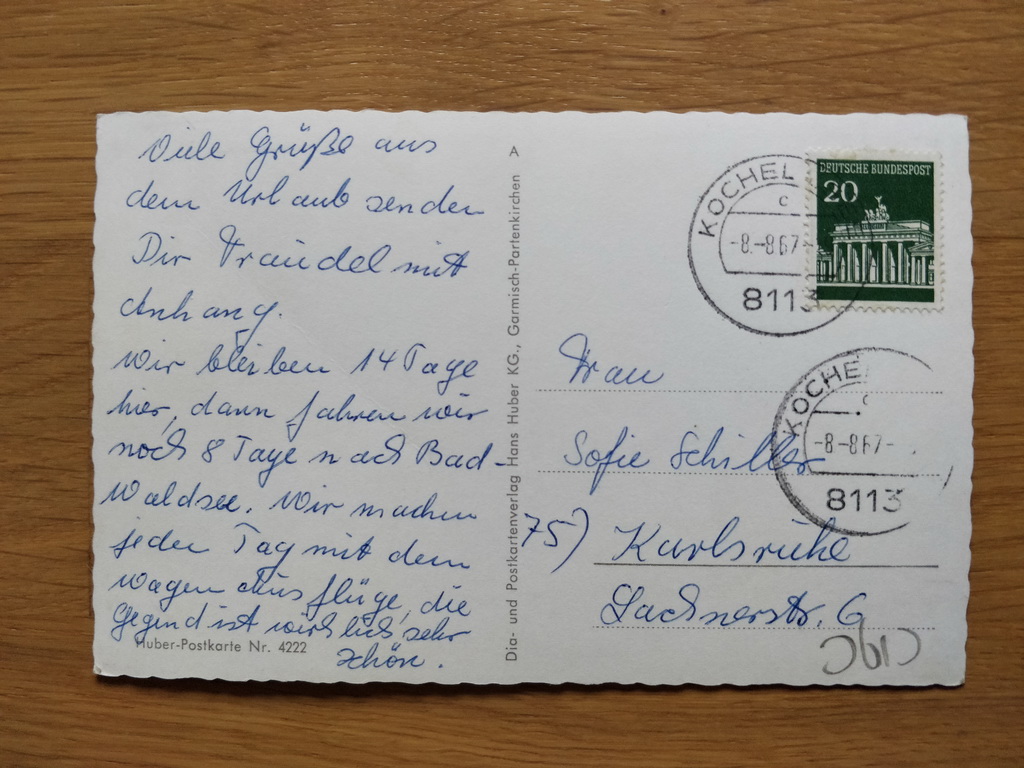 Viele Grüße aus
dem Urlaub senden
Dir Traudel mit
Anhang.
Wir bleiben 14 Tage
hier, dann fahren wir
noch 8 Tage nach Bad-
Waldsee. Wir machen
jeden Tag mit dem
Wagen Ausflüge, die
Gegend ist wirklich sehr
schön.
Huber-Postkarte Nr. 4222
Dia- und Postkartenverlag Hans Huber KG., Garmisch-Partenkirchen A
KOCHEL
c
-8.-8.67-
8113
DEUTSCHE BUNDESPOST
20
KOCHE
c
-8.-8.67-
8113
Frau
Sofie Schiller
75) Karlsruhe
Lachnerstr. 6